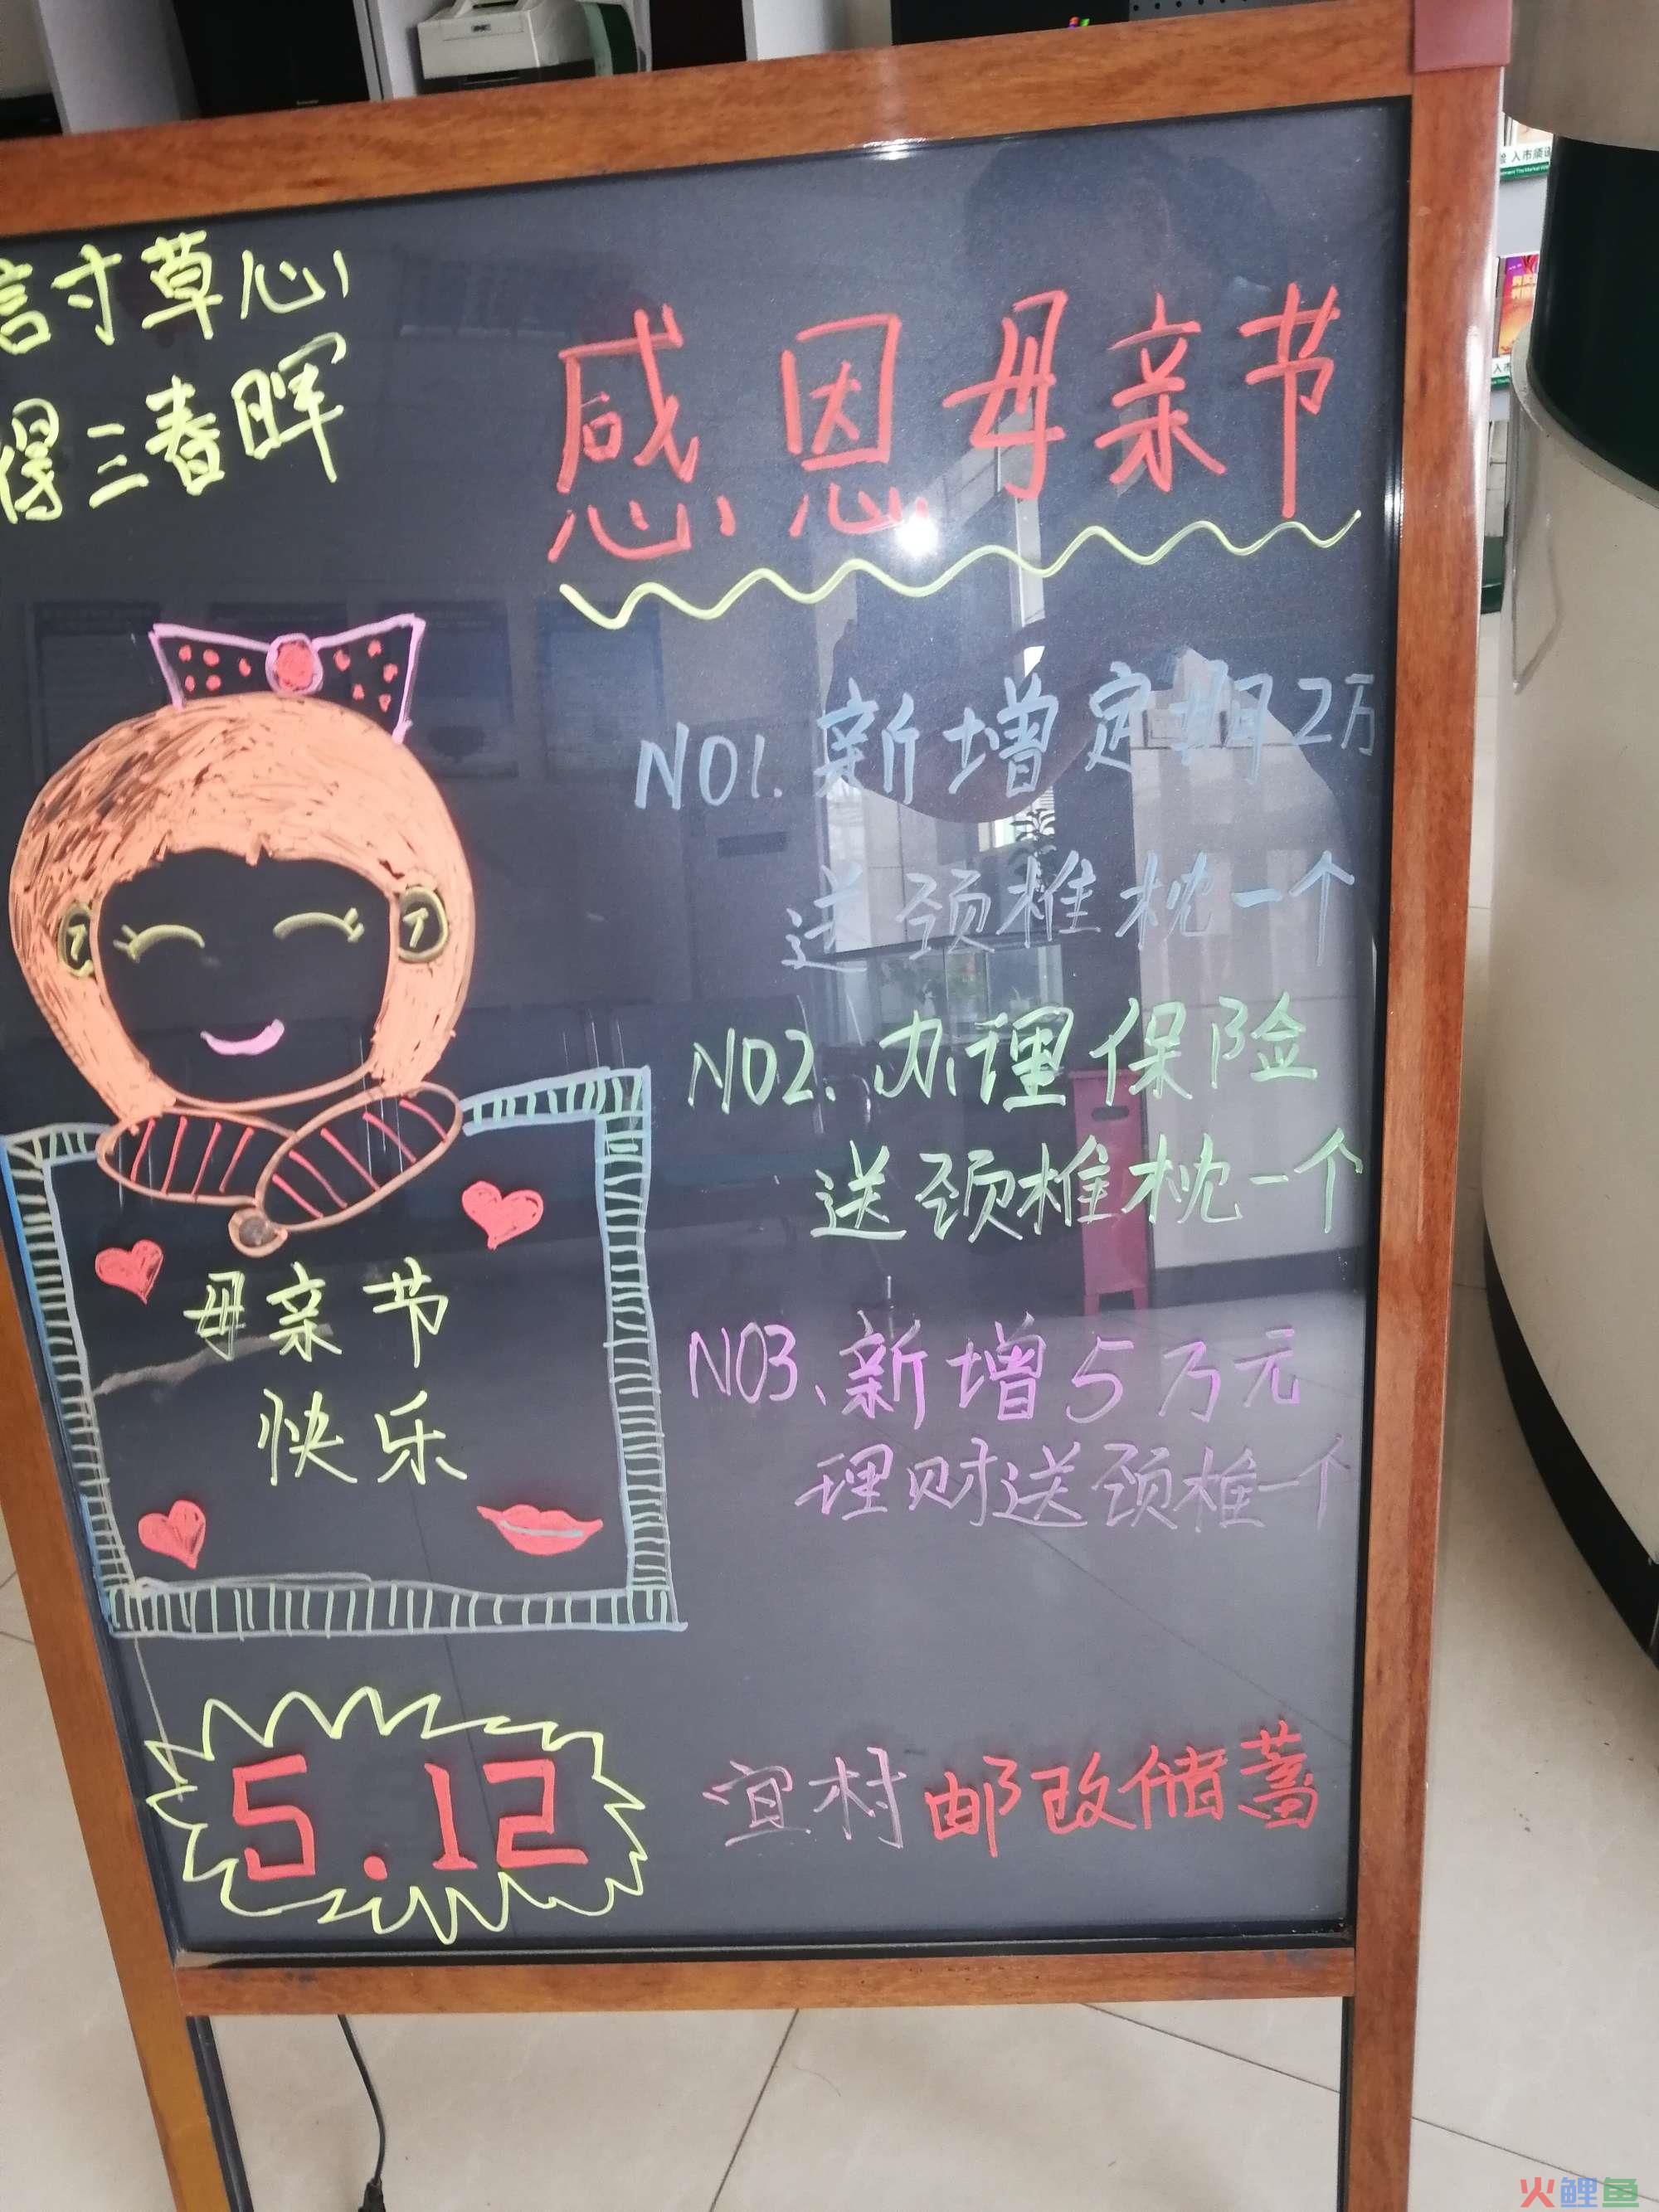 言寸草心
得三春晖
感恩母亲节
NO1.新增定期2万
送颈椎枕一个
NO2.办理保险
送颈椎枕一个
NO3、新增5万元
理财送颈椎一个
母亲节
快乐
5.12
宜村邮政储蓄
入市须
火鲤鱼